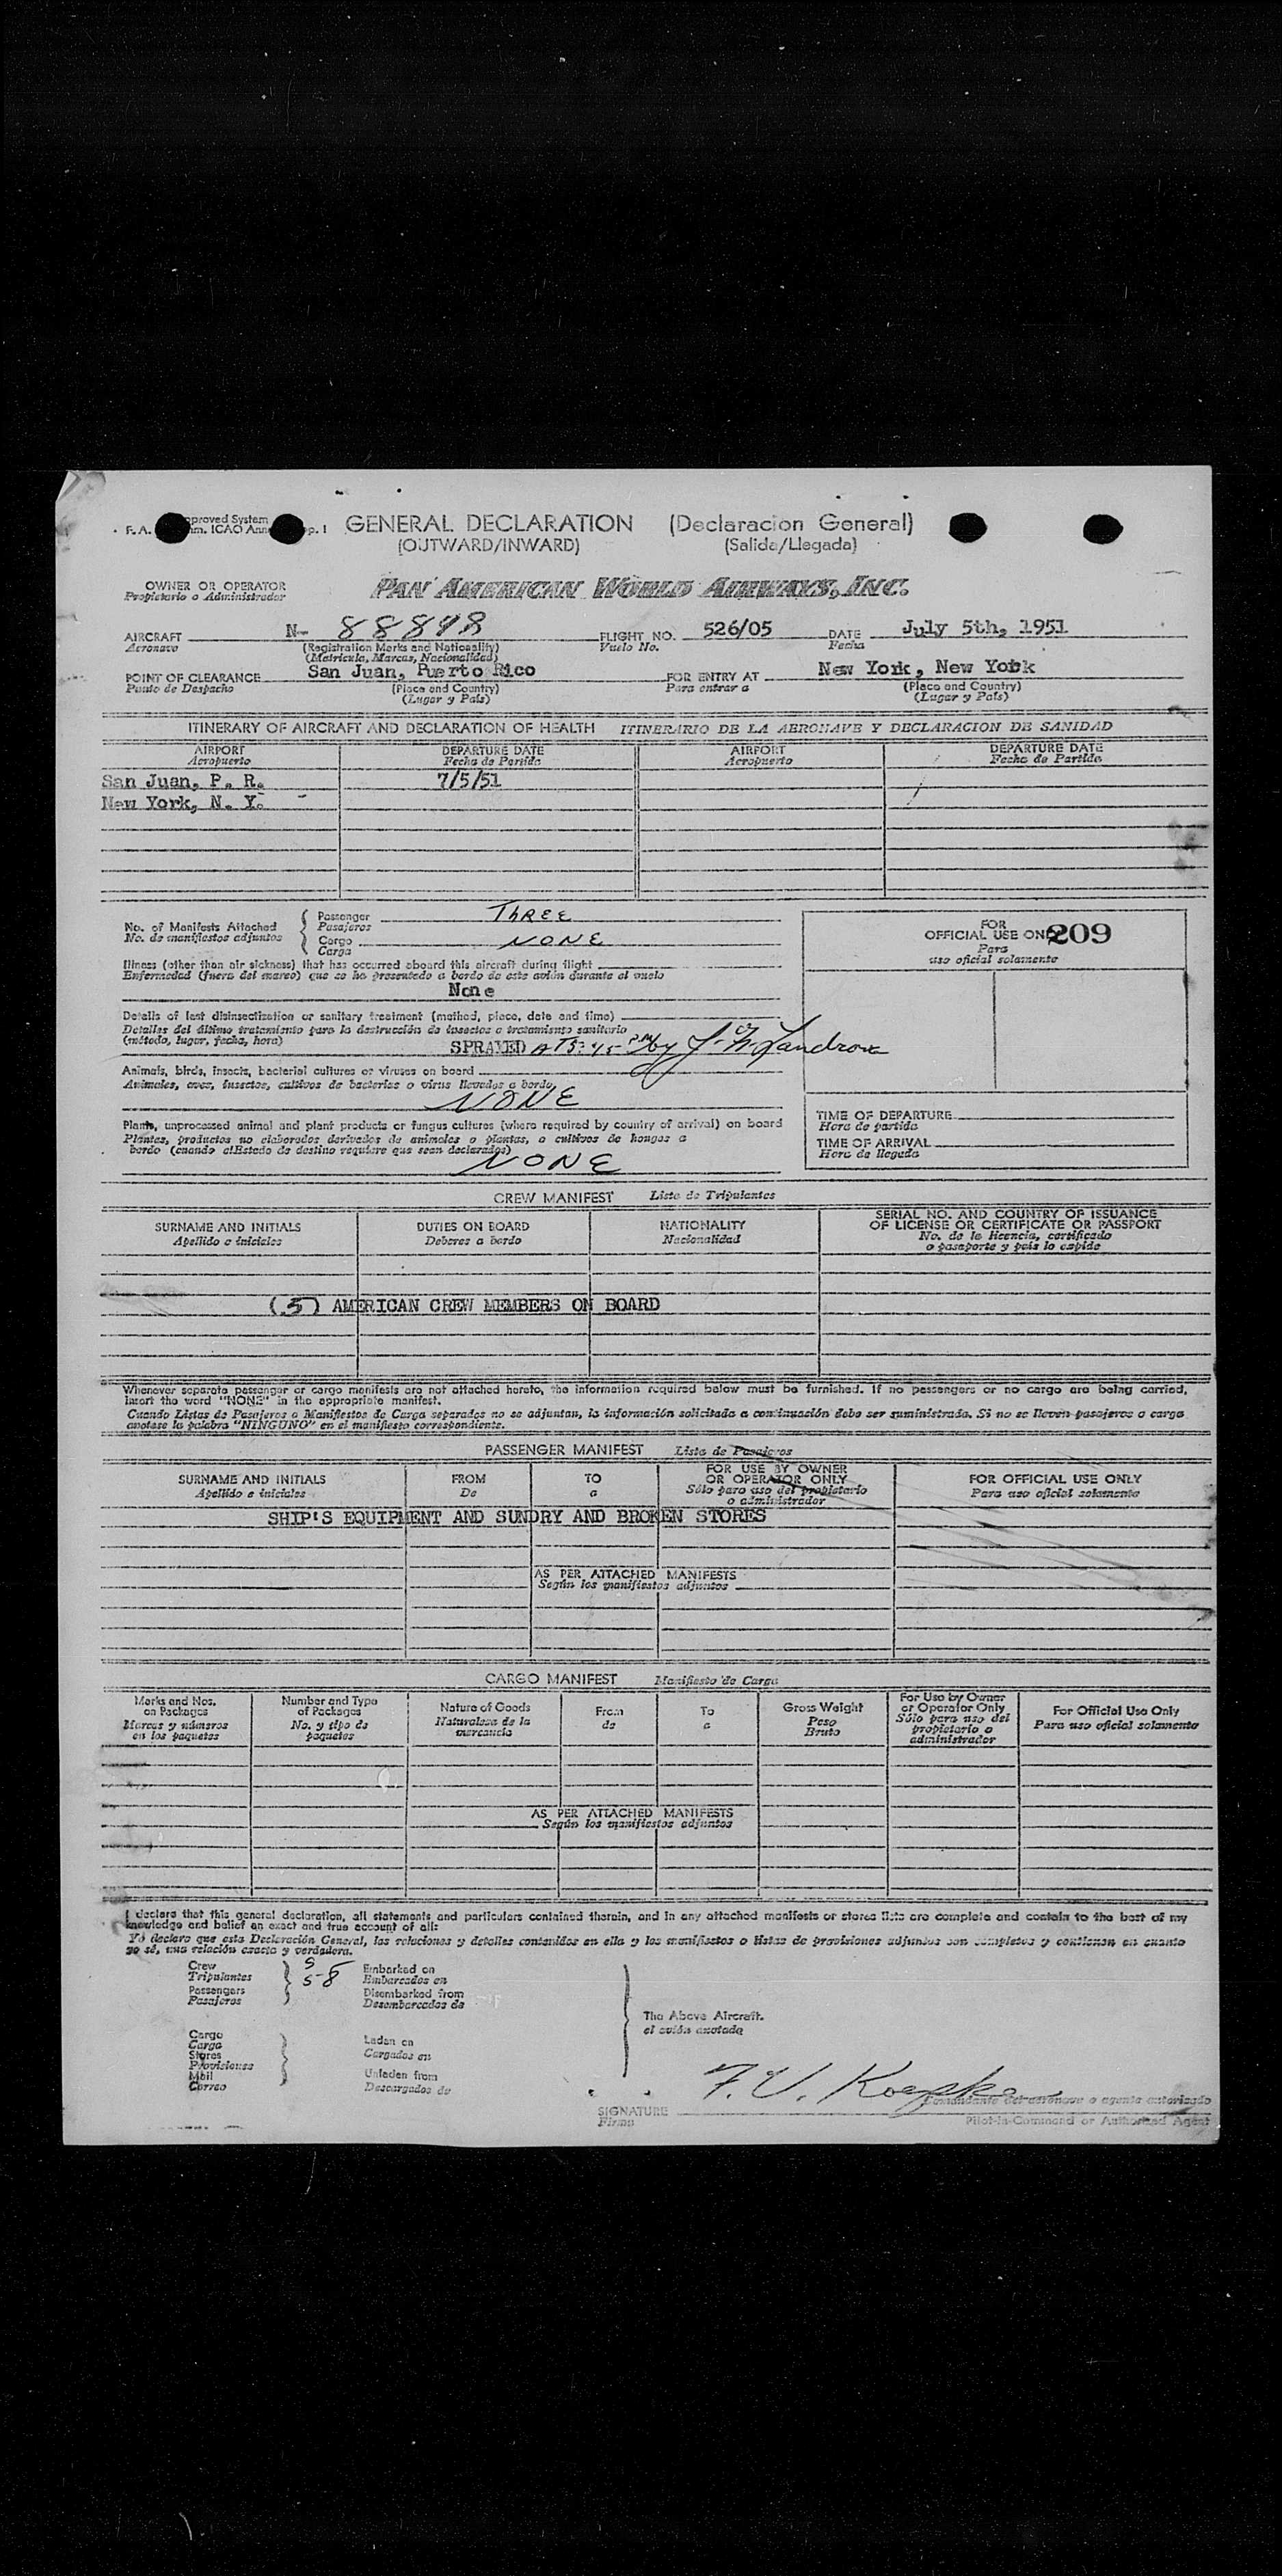 GENERAL DECLARATION (Declaracion General)
(OUTWARD/INWARD) (Salida/Llegada)
OWNER OR OPERATOR PAN AMERICAN WORLD AIRWAYS, INC.
Propietario o Administrador
AIRCRAFT N- FLIGHT NO. 526/05 DATE July 5th, 1951
Aeronave (Registration Marks and Nationality) Vuelo No. Fecha
(Matricula, Marcas, Nacionalidad)
POINT OF CLEARANCE San Juan, Puerto Rico FOR ENTRY AT New York, New York
Punto de Despacho (Place and Country) Para entrar a (Place and Country)
(Lugar y País) (Lugar y País)
ITINERARY OF AIRCRAFT AND DECLARATION OF HEALTH ITINERARIO DE LA AERONAVE Y DECLARACION DE SANIDAD
AIRPORT DEPARTURE DATE AIRPORT DEPARTURE DATE
Aeropuerto Fecha de Partida Aeropuerto Fecha de Partida
San Juan, P. R. 7/5/51
New York, N. Y.
No. of Manifests Attached Passenger THREE
No. de manifiestos adjuntos Pasajeros
Cargo NONE
Carga
FOR
OFFICIAL USE ONLY 209
Para
uso oficial solamente
Illness (other than air sickness) that has occurred aboard this aircraft during flight
Enfermedad (fuera del mareo) que se ha presentado a bordo de este avión durante el vuelo
None
Details of last disinsectization or sanitary treatment (method, place, date and time)
Detalles del último tratamiento para la destrucción de insectos o tratamiento sanitario
(método, lugar, fecha, hora)
SPRAYED AT 5:45 PM by
Animals, birds, insects, bacterial cultures or viruses on board
Animales, aves, insectos, cultivos de bacterias o virus llevados a bordo
NONE
Plants, unprocessed animal and plant products or fungus cultures (where required by country of arrival) on board
Plantas, productos no elaborados derivados de animales o plantas, o cultivos de hongos a
bordo (cuando el Estado de destino requiere que sean declarados)
NONE
TIME OF DEPARTURE
Hora de partida
TIME OF ARRIVAL
Hora de llegada
CREW MANIFEST Lista de Tripulantes
SURNAME AND INITIALS DUTIES ON BOARD NATIONALITY SERIAL NO. AND COUNTRY OF ISSUANCE
OF LICENSE OR CERTIFICATE OR PASSPORT
Apellido e iniciales Deberes a bordo Nacionalidad No. de la licencia, certificado
o pasaporte y país lo expide
(5) AMERICAN CREW MEMBERS ON BOARD
Whenever separate passenger or cargo manifests are not attached hereto, the information required below must be furnished. If no passengers or no cargo are being carried,
insert the word "NONE" in the appropriate manifest.
Cuando Listas de Pasajeros o Manifiestos de Carga separados no se adjuntan, la información solicitada a continuación debe ser suministrada. Si no se lleven pasajeros o carga
anotese la palabra "NINGUNO" en el manifiesto correspondiente.
PASSENGER MANIFEST Lista de Pasajeros
SURNAME AND INITIALS FROM TO FOR USE BY OWNER
OR OPERATOR ONLY FOR OFFICIAL USE ONLY
Apellido e iniciales De a Sólo para uso del propietario
o administrador Para uso oficial solamente
SHIP'S EQUIPMENT AND SUNDRY AND BROKEN STORES
AS PER ATTACHED MANIFESTS
Según los manifiestos adjuntos
CARGO MANIFEST Manifiesto de Carga
Marks and Nos.
on Packages
Marcas y números
en los paquetes
Number and Type
of Packages
No. y tipo de
paquetes
Nature of Goods
Naturaleza de la
mercancía
From
de
To
a
Gross Weight
Peso
Bruto
For Use by Owner
or Operator Only
Sólo para uso del
propietario o
administrador
For Official Use Only
Para uso oficial solamente
AS PER ATTACHED MANIFESTS
Según los manifiestos adjuntos
I declare that this general declaration, all statements and particulars contained therein, and in any attached manifests or stores lists are complete and contain to the best of my
knowledge and belief an exact and true account of all:
Yo declaro que esta Declaración General, las relaciones y detalles contenidos en ella y los manifiestos o listas de provisiones adjuntos son completos y contienen en cuanto
yo sé, una relación exacta y verdadera.
Crew Embarked on
Tripulantes Embarcados en
Passengers Disembarked from
Pasajeros Desembarcados de
The Above Aircraft.
el avión anotado
Cargo
Carga Laden on
Stores Cargados en
Provisiones
Mail Unladen from
Correo Descargados de
F. V. Koepke
SIGNATURE Comandante del aeronave o agente autorizado
Firma Pilot-in-Command or Authorized Agent